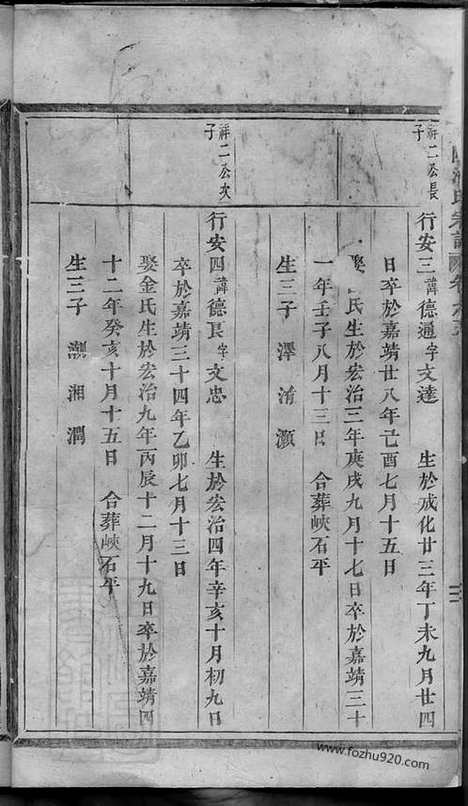 祥二公長子
行安三諱德通字文達 生於成化廿三年丁未九月廿四
日卒於嘉靖廿八年己酉七月十五日
娶 氏生於宏治三年庚戌九月十七日卒於嘉靖三十
一年壬子八月十三日 合葬峽石平
生三子 澤 淯 灝
祥二公次子
行安四諱德良字文忠 生於宏治四年辛亥十月初九日
卒於嘉靖三十四年乙卯七月十三日
娶金氏生於宏治九年丙辰十二月十九日卒於嘉靖四
十二年癸亥十月十五日 合葬峽石平
生三子 湘 潤
www.fozhu920.com